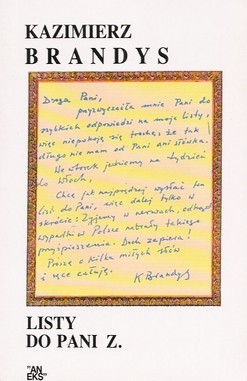 KAZIMIERZ
BRANDYS
Droga Pani,
przyzwyczaiła mnie Pani do
szybkich odpowiedzi na moje listy,
więc niepokoję się trochę, że tak
długo nie mam od Pani ani słówka.
We wtorek jedziemy na tydzień
do Włoch.
Chcę jak najprędzej wysłać ten
list do Pani, więc dalej tylko w
skrócie: Żyjemy w nerwach, odkąd
wypadki w Polsce nabrały takiego
przyspieszenia. Dech zapiera!
Proszę o kilka miłych słów
i ręce całuję.
K Brandys
LISTY
DO PANI Z.
"AN
EKS"